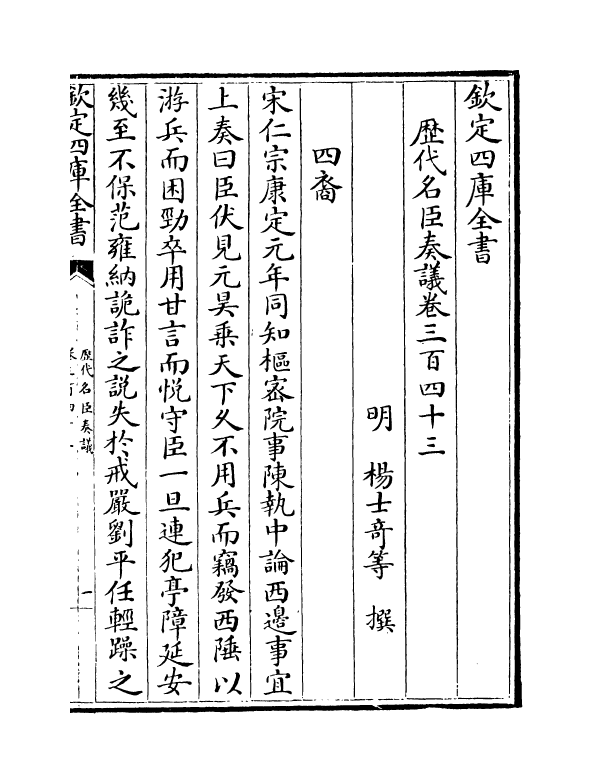 欽定四庫全書
歷代名臣奏議卷三百四十三
明 楊士奇等 撰
四裔
宋仁宗康定元年同知樞密院事陳執中論西邊事宜
上奏曰臣伏見元昊乘天下久不用兵而竊發西陲以
游兵而困勁卒用甘言而悅守臣一旦連犯亭障延安
幾至不保范雍納詭詐之説失於戒嚴劉平任輕躁之
欽定四庫全書
歷代名臣奏議
一